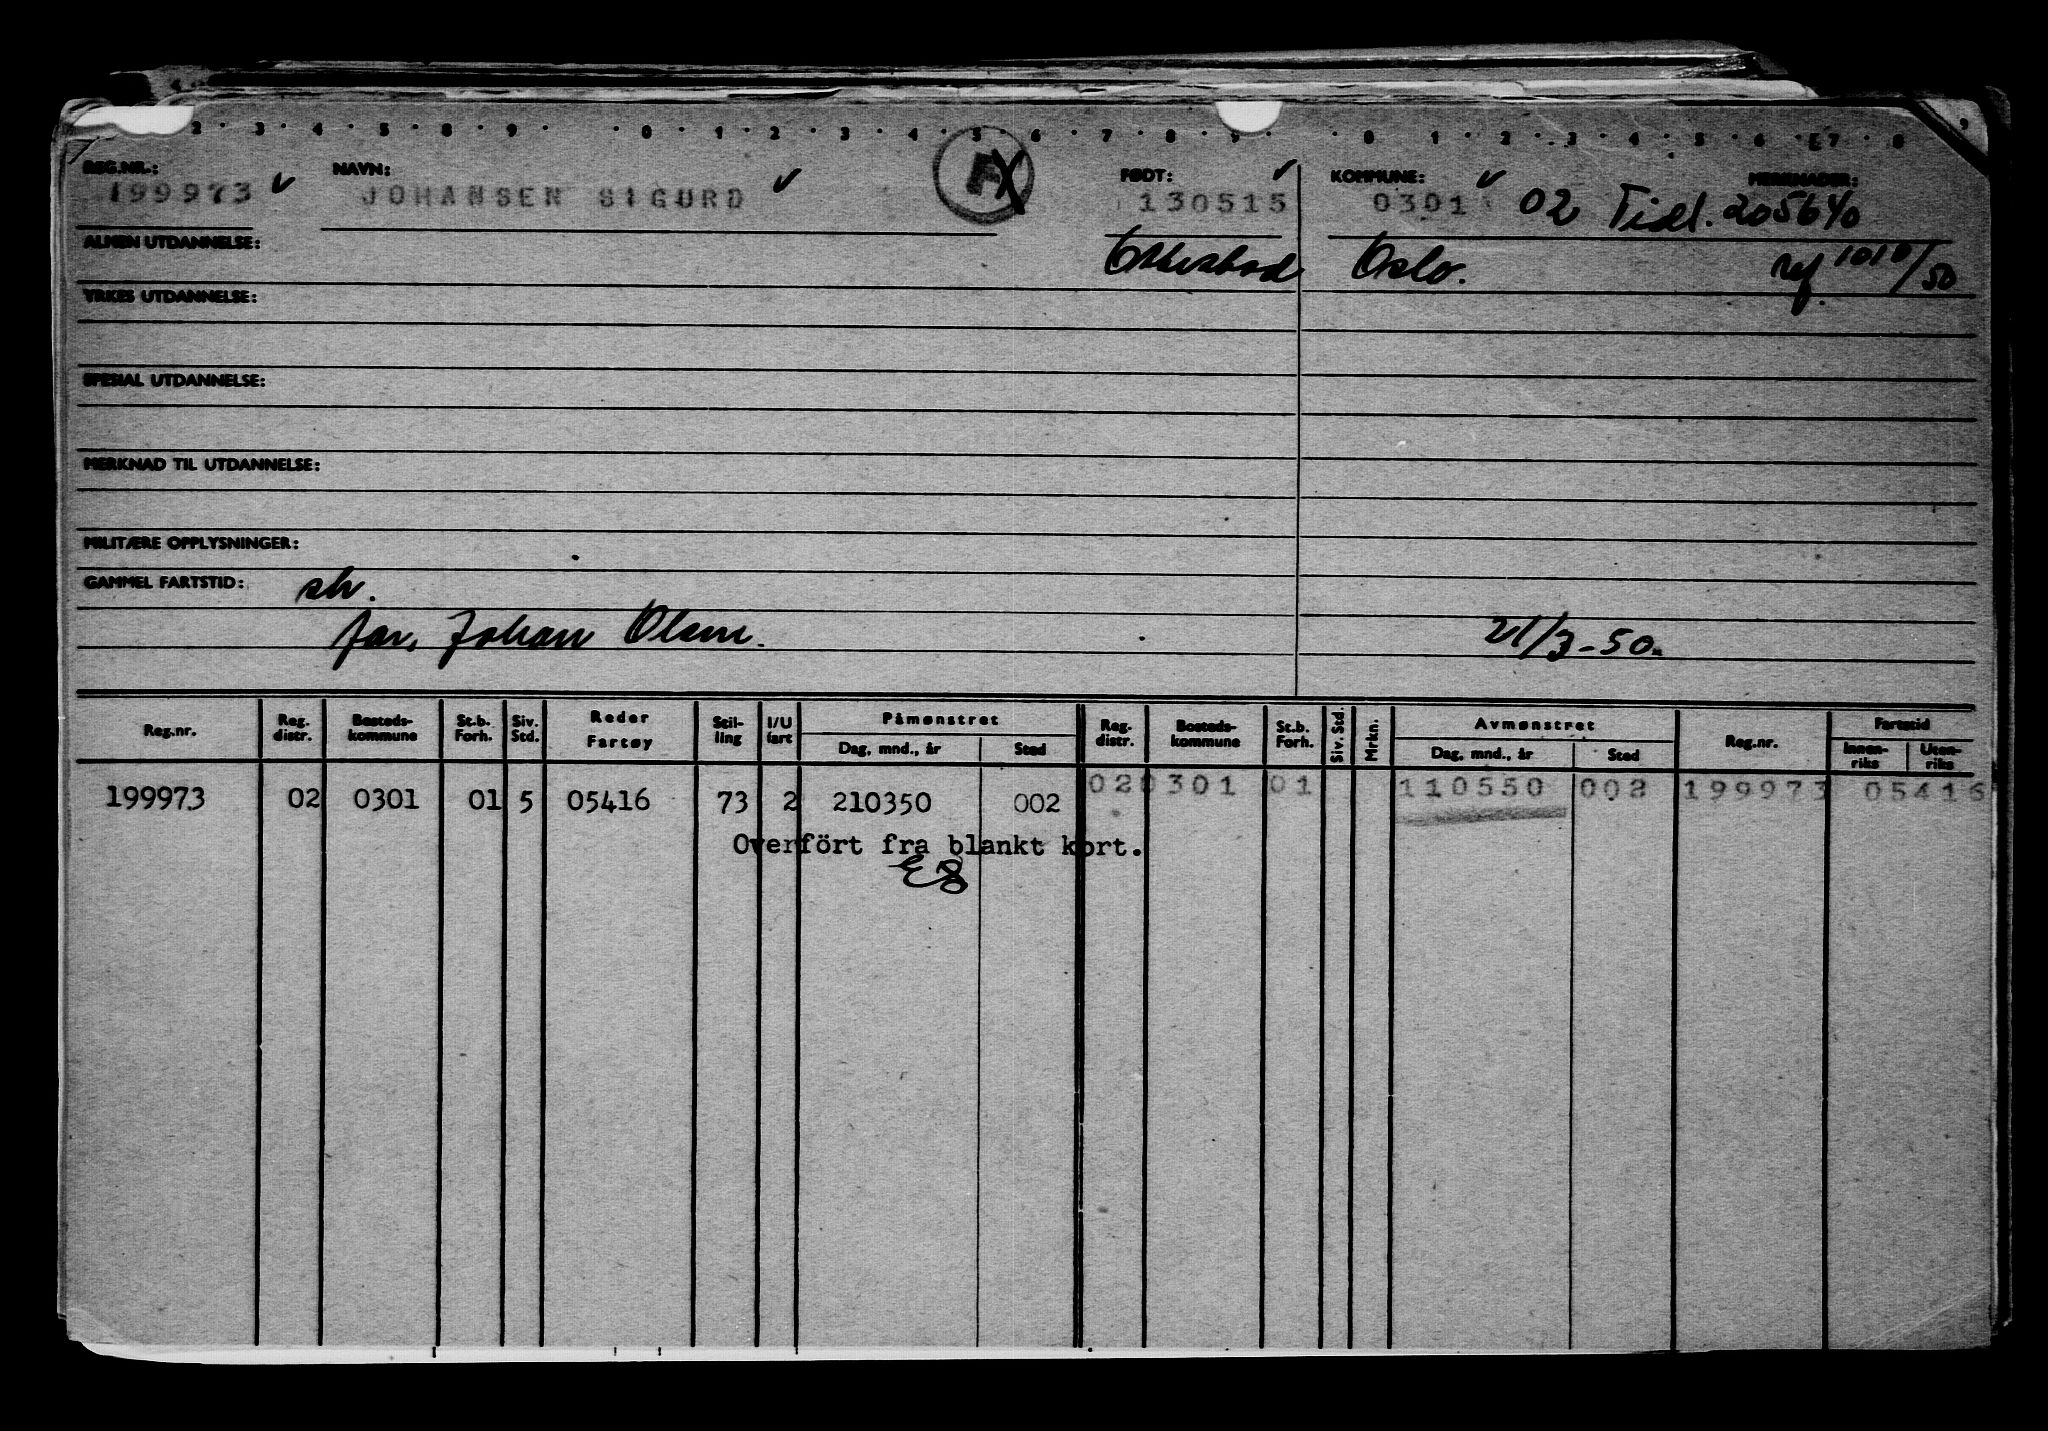 2 · 3 · 4 · 5 · 8 · 9 · · 0 · 1 · 2 · 3 · 4 · 5 · 6 · 7 · 8 · 9 · · 0 1 · 2 · 3 · 4 · 5 · 6 · 7 · 8
REG.NR.: NAVN: FØDT: KOMMUNE: MERKNADER:
199973 JOHANSEN SIGURD F 130515 0301 02 Tidl. 205640
ALMEN UTDANNELSE: Oslo. ref. 1010/50
YRKES UTDANNELSE:
SPESIAL UTDANNELSE:
MERKNAD TIL UTDANNELSE:
MILITÆRE OPPLYSNINGER:
GAMMEL FARTSTID:
far, Johan Olsen. 21/3-50.
Reg.nr. Reg. distr. Bosteds-kommune St.b. Forh. Siv. Std. Reder Fartøy Stil-ling I/U fart Påmønstret Dag, mnd., år Sted Reg. distr. Bosteds-kommune St.b. Forh. Siv. Std. Mrkn. Avmønstret Dag, mnd., år Sted Reg.nr. Fartstid Innen-riks Uten-riks
199973 02 0301 01 5 05416 73 2 210350 002 02 0301 01 110550 002 199973 05416
Overfört fra blankt kort.